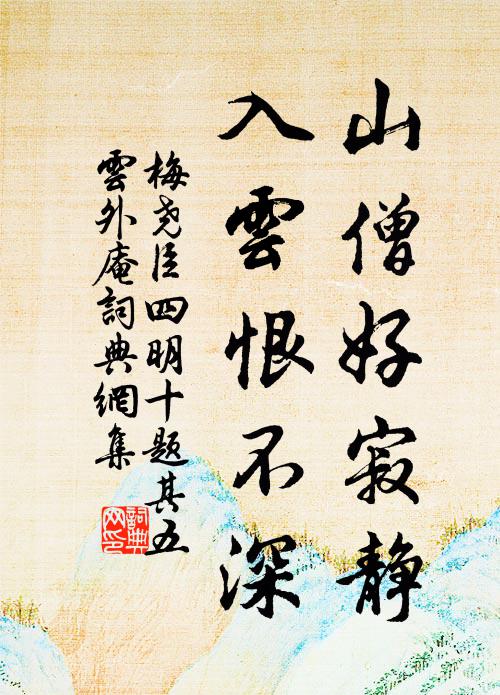 山僧好寂静
入雲恨不深
梅尧臣四明十题其五
雲外庵詞典網集
詞典
网印